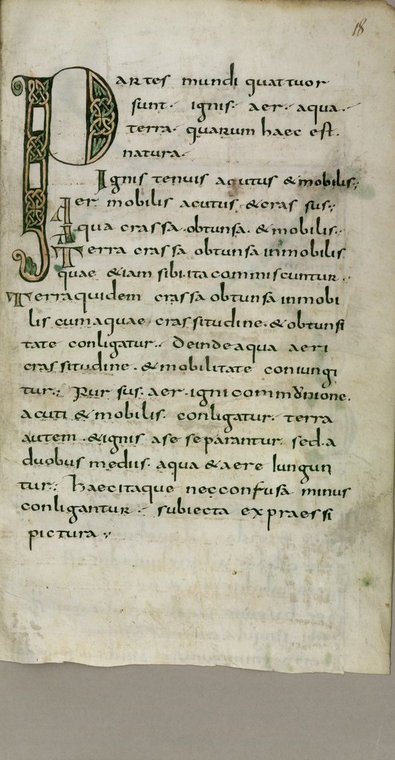 18
Partes mundi quattuor
sunt· ignis· aer· aqua·
terra· quarum haec est·
natura·
Ignis tenuis acutus & mobilis;
Aer mobilis acutus· & cras sus;
Aqua crassa· obtunsa· & mobilis·
Terra crassa obtunsa inmobilis
quae &iam sibi ita commiscuntur·
Terra quidem crassa obtunsa inmobi
lis cum aquae crassitudine· & obtunsi
tate conligatur· deinde aqua aeri
crassitudine· & mobilitate coniungi
tur; Rur sus· aer· igni
acuti & mobilis· conligatur· terra
autem· & ignis a se separantur sed· a
duobus mediis· aqua & aere iungun
tur; haec itaque nec confusa minus
conligantur· subiecta expraessi
pictura;